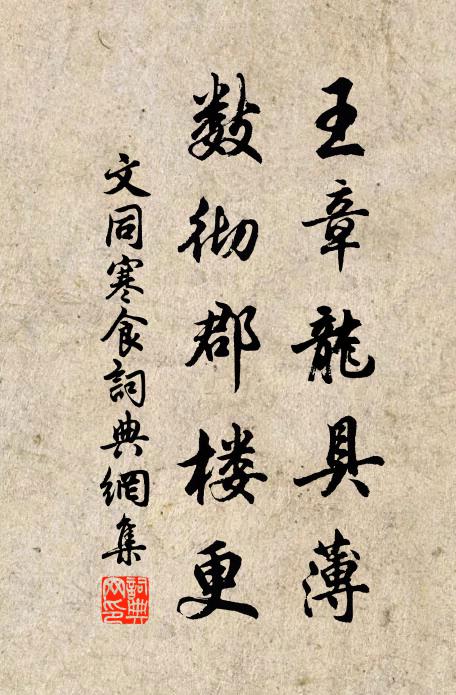 王章龍具薄
数彻郡楼更
文同寒食詞典網集
詞典网印